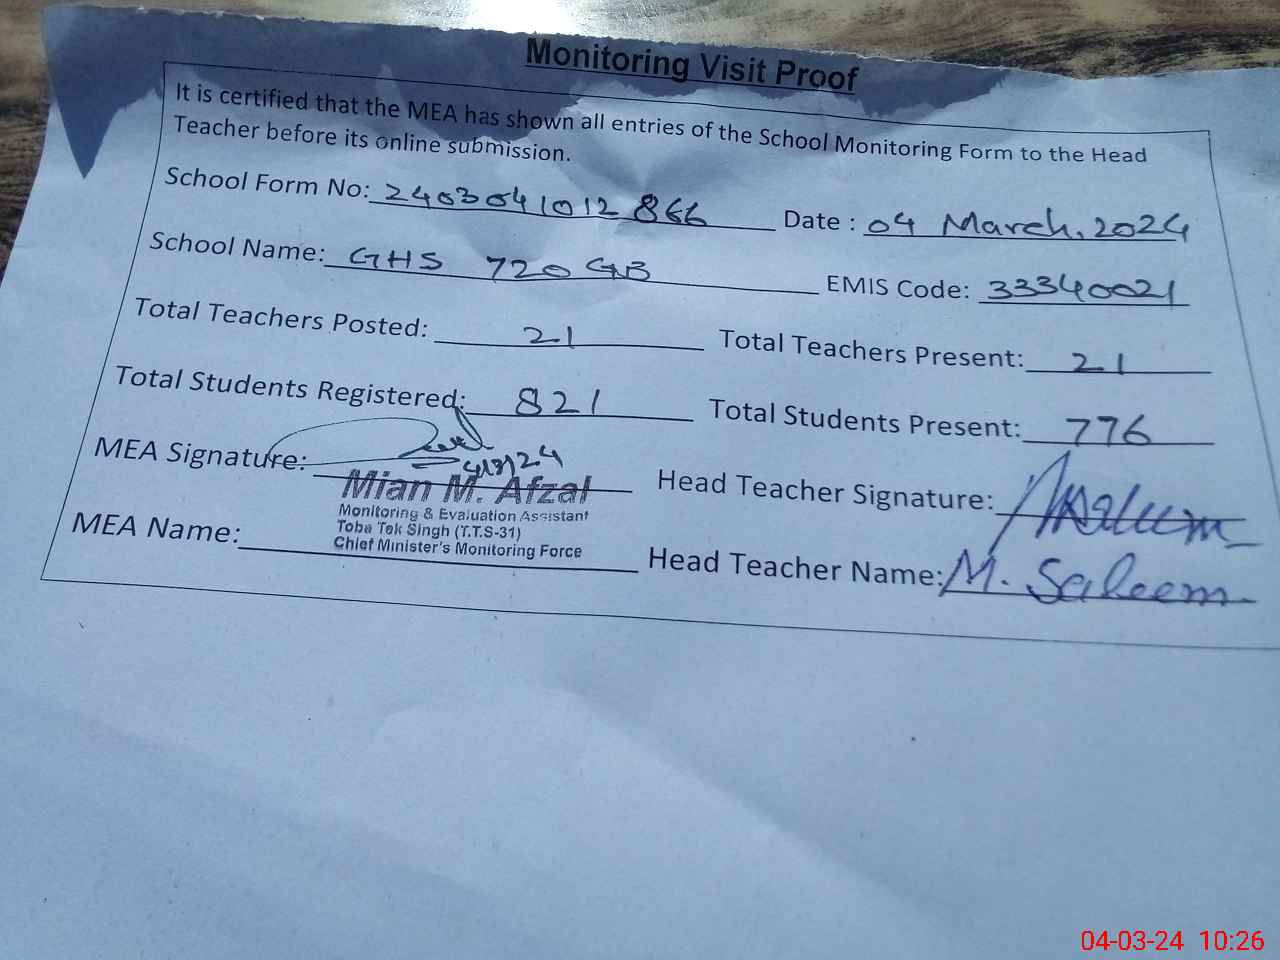 Monitoring Visit Proof
It is certified that the MEA has shown all entries of the School Monitoring Form to the Head
Teacher before its online submission.
School Form No: 2403041012866 Date : 04 March, 2024
School Name: GHS 720 GB EMIS Code: 33340021
Total Teachers Posted: 21 Total Teachers Present: 21
Total Students Registered: 821 Total Students Present: 776
MEA Signature: 4/3/24 Head Teacher Signature: Saleem
Mian M. Afzal
Monitoring & Evaluation Assistant
Toba Tek Singh (T.T.S-31)
Chief Minister's Monitoring Force
MEA Name: Head Teacher Name: M. Saleem
04-03-24 10:26